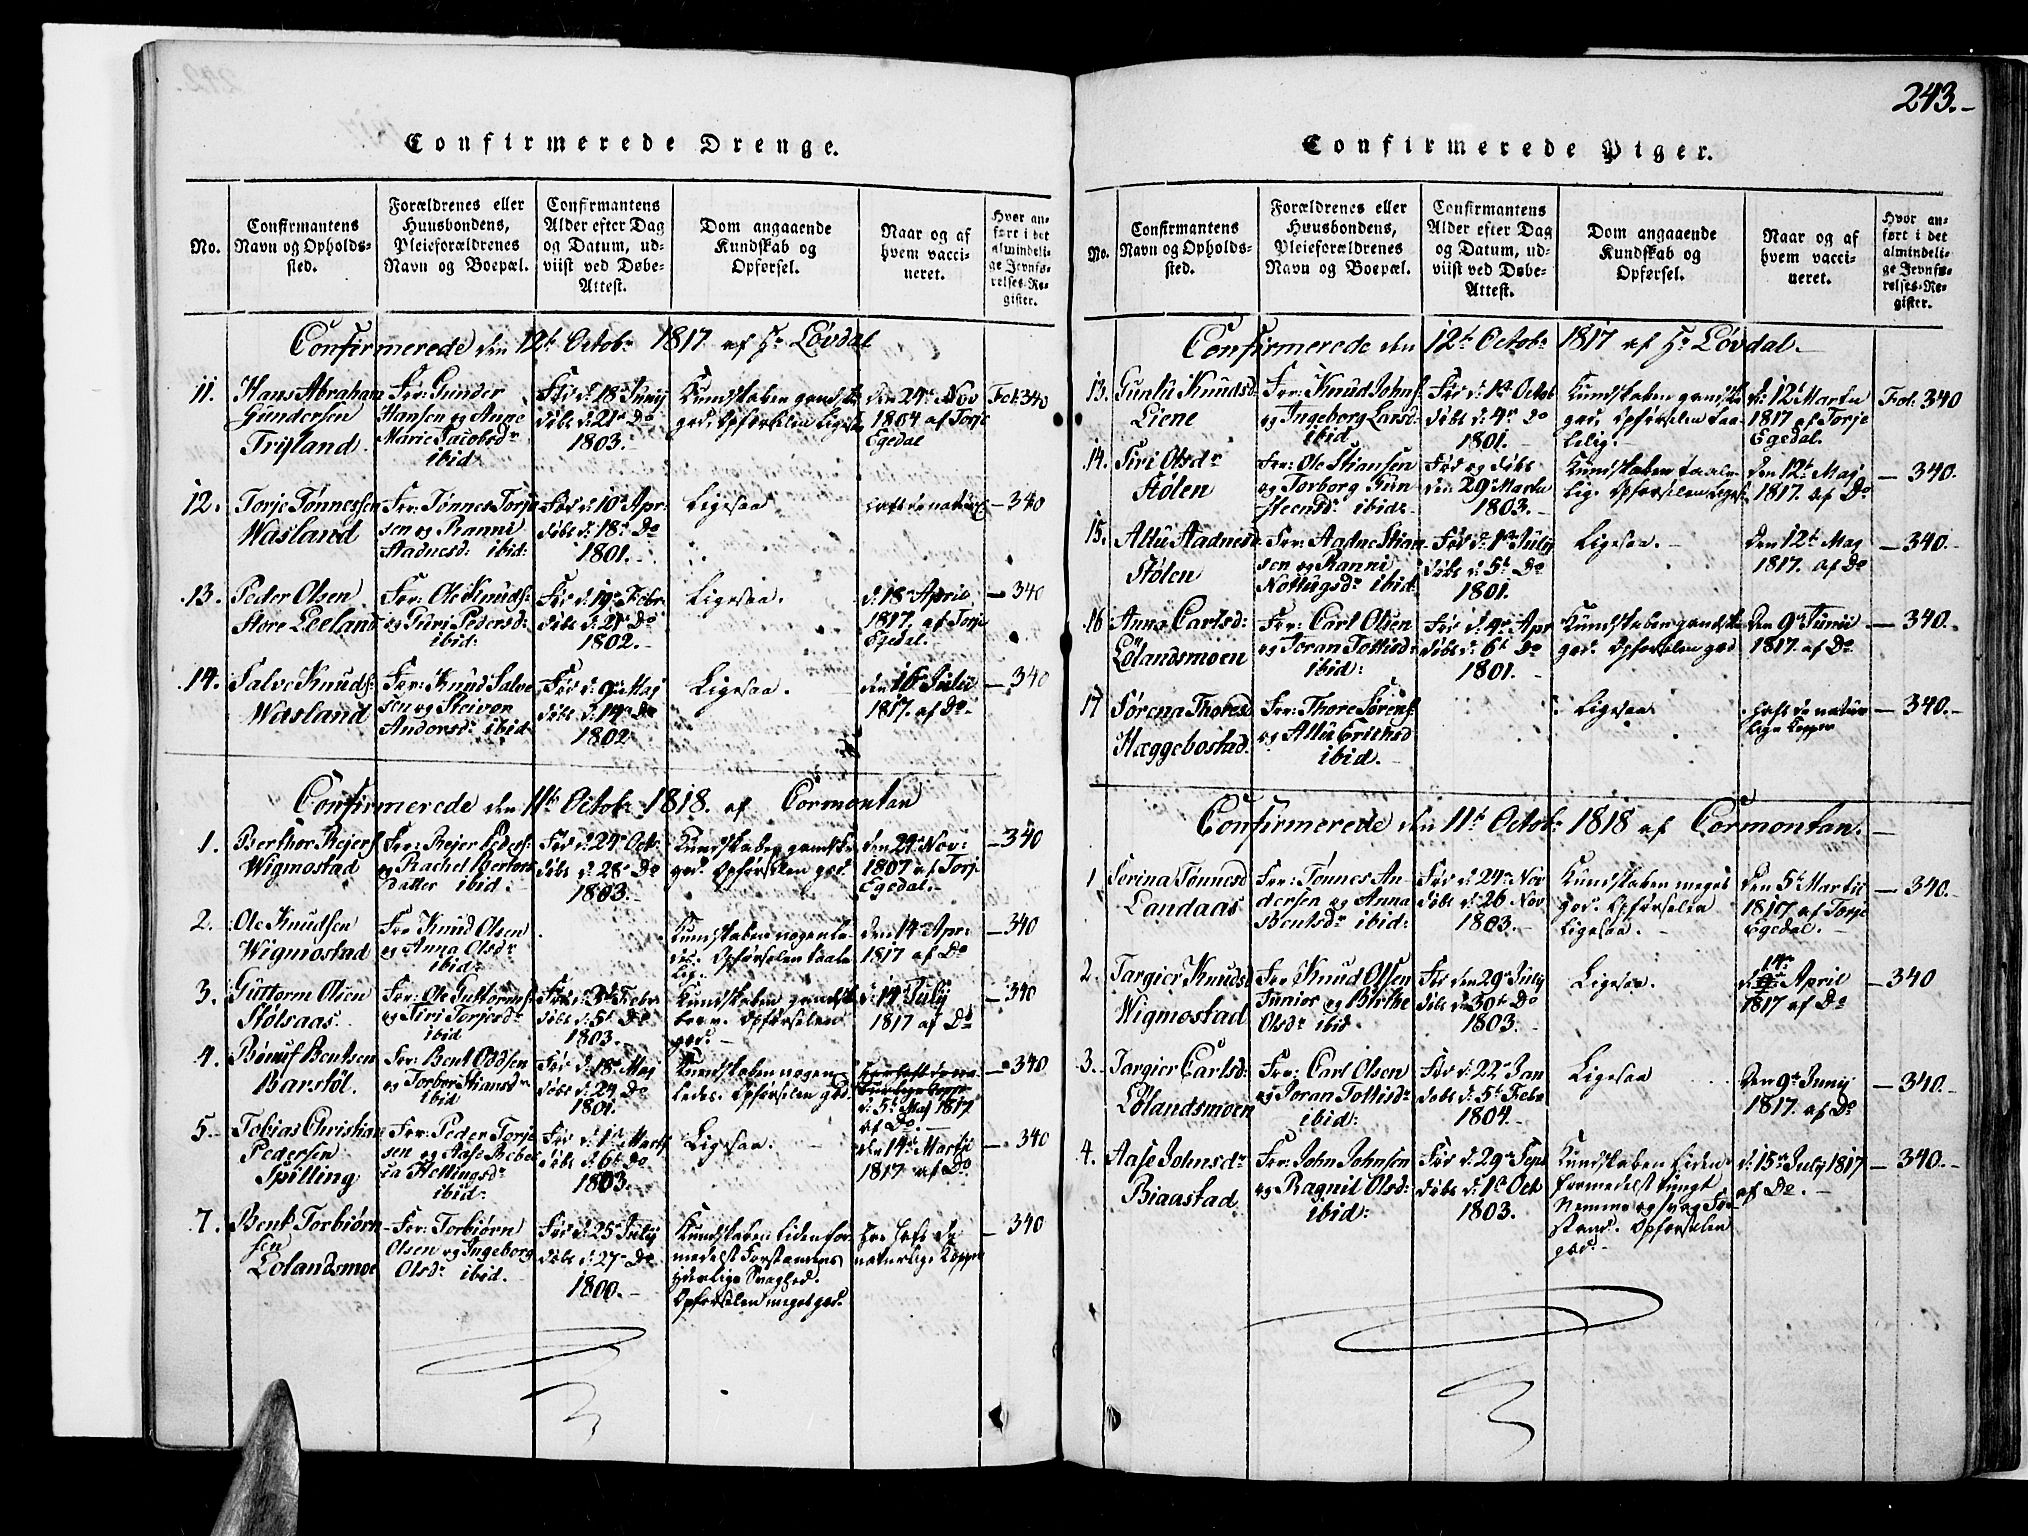 243.
Confirmerede Drenge.
No.
Confirmantens
Navn og Opholds-
sted.
Forældrenes eller
Huusbondens,
Pleieforældrenes
Navn og Boepæl.
Confirmantens
Alder efter Dag
og Datum, ud-
viist ved Døbe-
Attest.
Dom angaaende
Kundskab og
Opførsel.
Naar og af
hvem vacci-
neret.
Hvor an-
ført i det
almindeli-
ge Jevnfø-
relses-Re-
gister.
Confirmerede den 12t Octobr 1817 af Hr Løvdal
11.
Hans Abraham
Gundersen
Trijland.
For: Gunder
Hansen og Anne
Marie Jacobsdr
ibid:
Fød d: 18r Junij
døbt d: 21r Do
1803.
Kundskaben gandske
god, Opførselen ligesaa
den 24r Nov
1804 af Torje
Egedal
Fol: 340
12.
Torje Tønnessen
Wasland
For: Tønnes Torje
sen og Ranni
Aadnesd: ibid:
Fød d: 10r Apr
døbt d: 18r Do
1801.
Ligesaa
340
13.
Peder Olsen
Store Eeland
For: Ole Knuds:
og Guri Pedersd:
ibid:
Fød d: 19r Febr
døbt d: 21r Do
1802.
Ligesaa.
d: 18r April
1817. af Torje
Egedal.
340
14.
Salve Knuds:
Wasland
For: Knud Salve
sen og Steivor
Andorsdr ibid:
Fød d: 9r Maj
døbt d: 14r Do
1802
Ligesaa.
den 16 Julii
1817. af Do
340
Confirmerede den 11te Octobr 1818. af Cormontan
1.
Berthor Rejers:
Wigmostad
For: Rejer Peders:
og Rachel Bertors
datter ibid:
Fød d: 24r Oct:
døbt d: 28r Do
1803.
Kundskaben gandske
god. Opførselen god.
den 24r Nov:
1807 af Torje
Egedal.
340
2.
Ole Knudsen
Wigmostad
For Knud Olsen
og Anna Olsdr
ibid:
Kundskaben nogenle-
des. Opførselen taale
lig.
den 14r Apr:
1817 af Do
340
3.
Guttorm Olsen
Stølsaas.
For: Ole Guttorms:
og Siri Torjesdr
ibid
Fød d: 3t Febr
døbt d: 5t Do
1803.
Kundskaben gandske
brav. Opførselen
god.
d: 14 Julij
1817 af Do
340
4.
Rønuf Bentsen
Barstøl.
For: Bent Oddsen
og Torbor Stiansdr
ibid
Fød d: 18r Maj
døbt d: 24 Do
1801.
Kundskaben nogen
ledes. Opførselen god.
d: 5t Maj 1817
af Do.
340
5.
Tobias Christian
Pedersen
Spilling
For: Peder Torje
sen og Aase Rebec
ca Flettingsdr
ibid:
Fød d: 1t Marts
døbt d: 6t Do
1803.
Ligesaa.
den 14r Martii
1817 af Do
340
7.
Bent Torbiørn
sen
Lolandsmoe
For: Torbiørn
Olsen og Ingeborg
Olsdr ibid.
Fød d: 25r Julij
døbt d: 27r Do
1800.
Kundskaben liden for
medelst Forstandens
Opførselen meget god.
har haft de
naturlige Kopper
340
Confirmerede Piger.
No.
Confirmantens
Navn og Opholds-
sted.
Forældrenes eller
Huusbondens,
Pleieforældrenes
Navn og Boepæl.
Confirmantens
Alder efter Dag
og Datum, ud-
viist ved Døbe-
Attest.
Dom angaaende
Kundskab og
Opførsel.
Naar og af
hvem vacci-
neret.
Hvor an-
ført i det
almindeli-
ge Jevnfø-
relses-Re-
gister.
Confirmerede den 12t Octobr 1817 af Hr Løvdal.
13.
Guntu Knudsd
Liene
For: Knud Johns:
og Ingeborg Larsd:
ibid.
Fød d: 1st Octob
døbt d: 4r do
1801.
Kundskaben gandske
god, Opførselen taa-
lelig.
d: 12t Martii
1817 af Torje
Egedal.
Fol: 340
14.
Siri Olsdr
Stølen
For: Ole Stiansen
og Torborg Gun
steensdr ibid:
Fød og døbt
den 29r Martii
1803.
Kundskaben taale-
lig. Opførselen ligesaa
den 12t Maj
1817. af Do
340.
15.
Altu Aadnesd
Stølen
For: Aadne Stian
sen og Ranni
Nottugsdr ibid:
Fød d: 1st Julij
døbt d: 5t Do
1801.
Ligesaa.
den 12t Maj
1817. af Do
340.
16
Anna Carlsd:
Lölandsmoen
For: Carl Olsen
og Joran Tollisd:
ibid:
Fød d: 4r Apr
døbt d: 6t Do
1801.
Kundskaben gandske
god. Opførselen god
den 9r Junii
1817. af Do
340.
17
Sørena Thoresd
Hæggebostad.
For: Thore Sørens:
og Altu Erichsd
ibid.
Ligesaa
haft de natur
lige Kopper
340.
Confirmerede den 11t Octobr 1818 af Cormontan.
1
Serina Tønnesd
Landaas
For: Tønnes An
dersen og Anna
Bentsdr ibid:
Fød d: 24r Nov
døbt d: 26 Nov
1803.
Kundskaben meget
god. Opførselen
ligesaa.
den 5t Martii
1817 af Torje
Egedal.
340.
2.
Targier Knudsd
Wigmostad
For Knud Olsen
Junior og Birthe
Olsdr ibid.
Fød den 29r Julij
døbt d: 30t Do
1803.
Ligesaa.
14r
d: April
1817 af Do
340
3.
Targier Carlsd:
Lölandsmoen
For: Carl Olsen
og Joran Tollisdr
ibid:
Fød d: 22r Jan
døbt d: 5t Febr
1804.
Ligesaa
den 9t Junij
1817. af Do
340.
4.
Aase Johnsdr
Biaastad
For: John Johnsen
og Ragnil Olsd:
ibid:
Fød d: 29r Sept
døbt d: 1st Oct
1803.
Kundskaben liden
formedelst tungt
Nemme og svag For
stand. Opførselen
god.
d: 15r July 1817
af Do.
340.